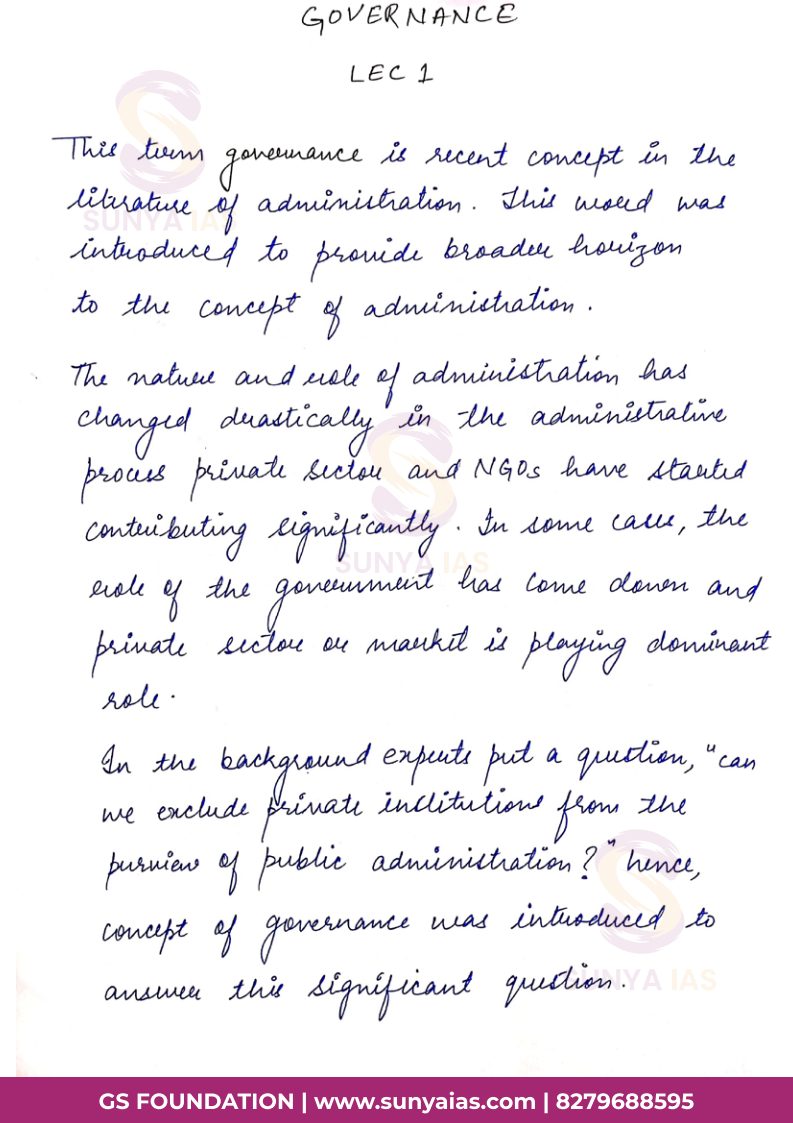 GOVERNANCE
LEC 1
This term governance is recent concept in the
literature of administration. This word was
introduced to provide broader horizon
to the concept of administration.
The nature and role of administration has
changed drastically in the administrative
process private sector and NGOs have started
contributing significantly. In some cases, the
role of the government has come down and
private sector or market is playing dominant
role.
In the background experts put a question, "can
we exclude private institutions from the
purview of public administration?" hence,
concept of governance was introduced to
answer this significant question.
SUNYA IAS
SUNYA IAS
SUNYA IAS
GS FOUNDATION | www.sunyaias.com | 8279688595